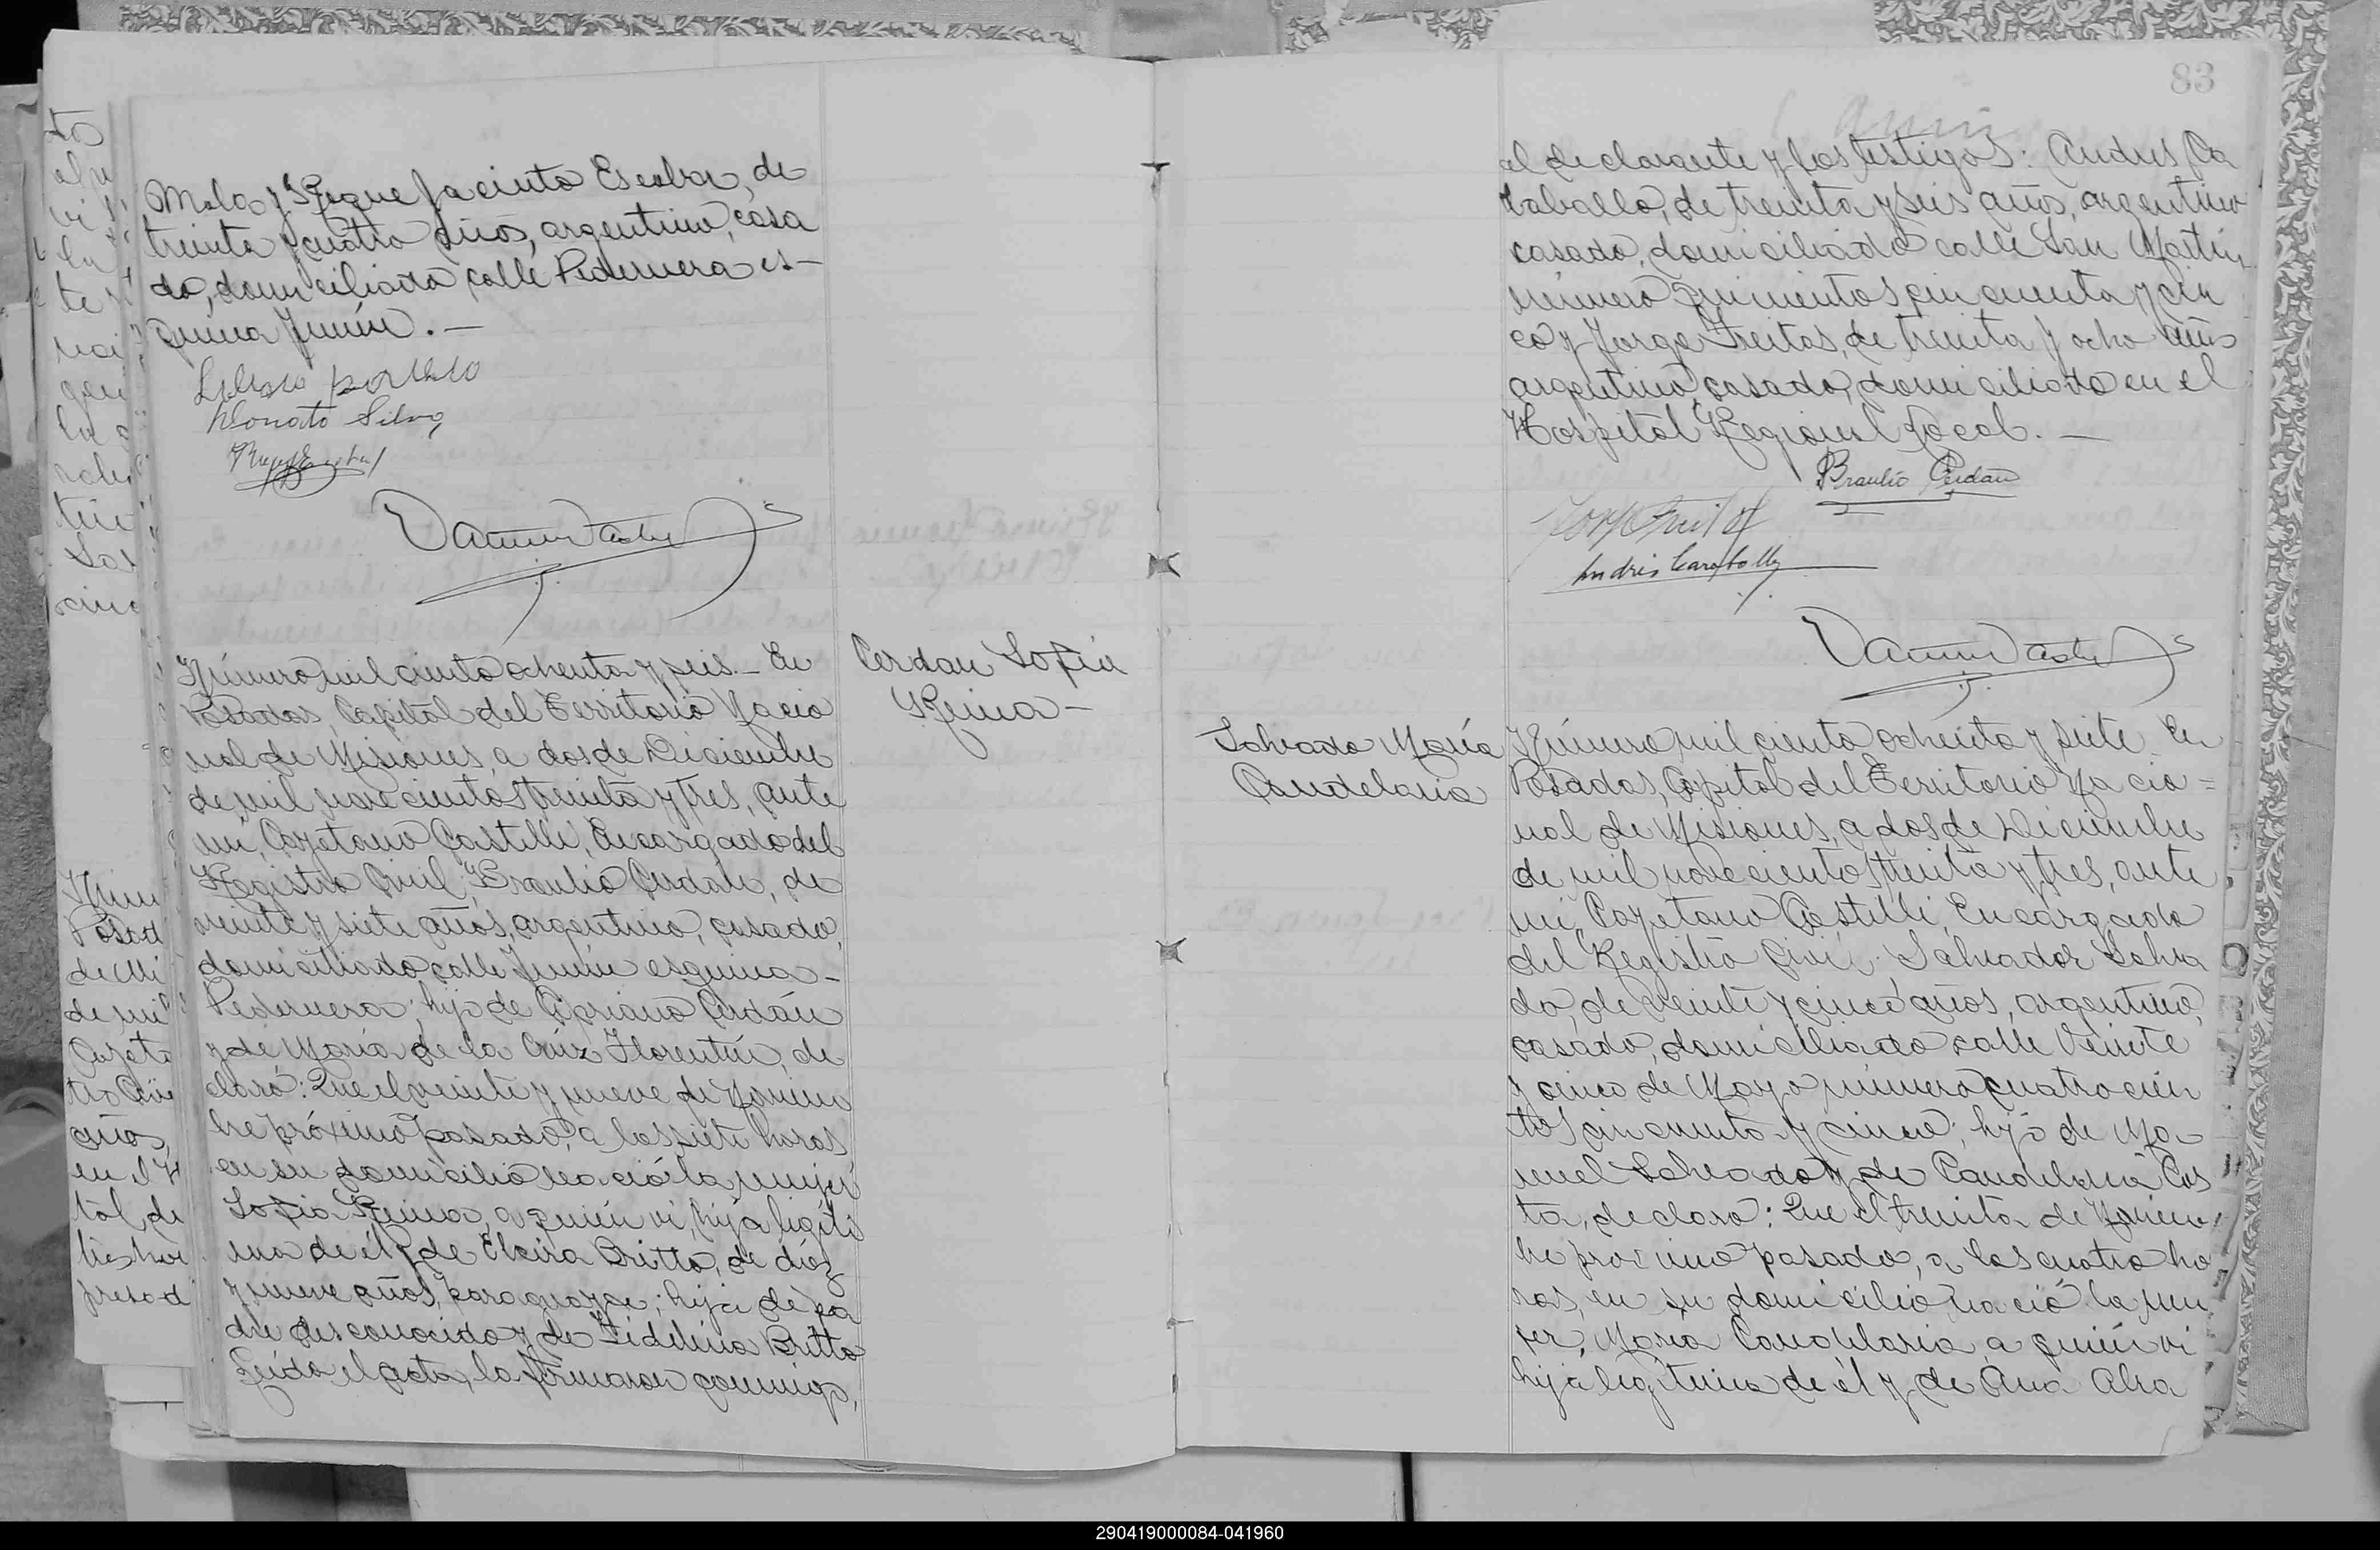 Mola y Roque Jacinto Escobar, de
treinta y cuatro años, argentino, casa
do, domiciliado calle Pedernera es-
quina Junín.-
Donato Silva
Número mil ciento ochenta y seis.- En
Posadas, Capital del Territorio Nacio
nal de Misiones, a dos de Diciembre
de mil novecientos treinta y tres, ante
mi, Cayetano Castelli, Encargado del
Registro Civil, Braulio Cerdán, de
veinte y siete años, argentino, casado,
domiciliado calle Junín esquina-
Pedernera; hijo de Cipriano Cerdán
y de María de la Cruz Florentín, de
claró: Que el veinte y nueve de Noviem
bre próximo pasado, a las siete horas
en su domicilio nació la mujer
Sofía Reina, a quién vi, hija legíti
ma de él y de Elvira Britto, de diez
y nueve años, paraguaya; hija de pa
dre desconocido y de Fidelina Britto
Leída el acta, la firmaron conmigo,
Cerdan Sofía
Reina-
83
el declarante y los testigos: Andres Ca
raballo, de treinta y seis años, argentino
casado, domiciliado calle San Martín
número quinientos cincuenta y cin
co y Jorge Freitas, de treinta y ocho años
argentino, casado, domiciliado en el
Hospital Regional local.-
Braulio Cerdan
Andrés Caraballo
Salvado María
Candelaria
Número mil ciento ochenta y siete. En
Posadas, Capital del Territorio Nacio=
nal de Misiones, a dos de Diciembre
de mil novecientos treinta y tres, ante
mi, Cayetano Castelli, Encargado
del Registro Civil. Salvador Salva
do, de veinte y cinco años, argentino,
casado, domiciliado calle Veinte
y cinco de Mayo número cuatrocien
tos cincuenta y cinco; hijo de Ma-
nuel Salvado y de Candelaria Cos
ta, declaro: Que el treinta de Noviem
bre proximo pasado, a las cuatro ho
ras, en su domicilio, nació la mu
jer, María Candelaria, a quién vi
hija legítima de él y de Ana Alva
290419000084-041960